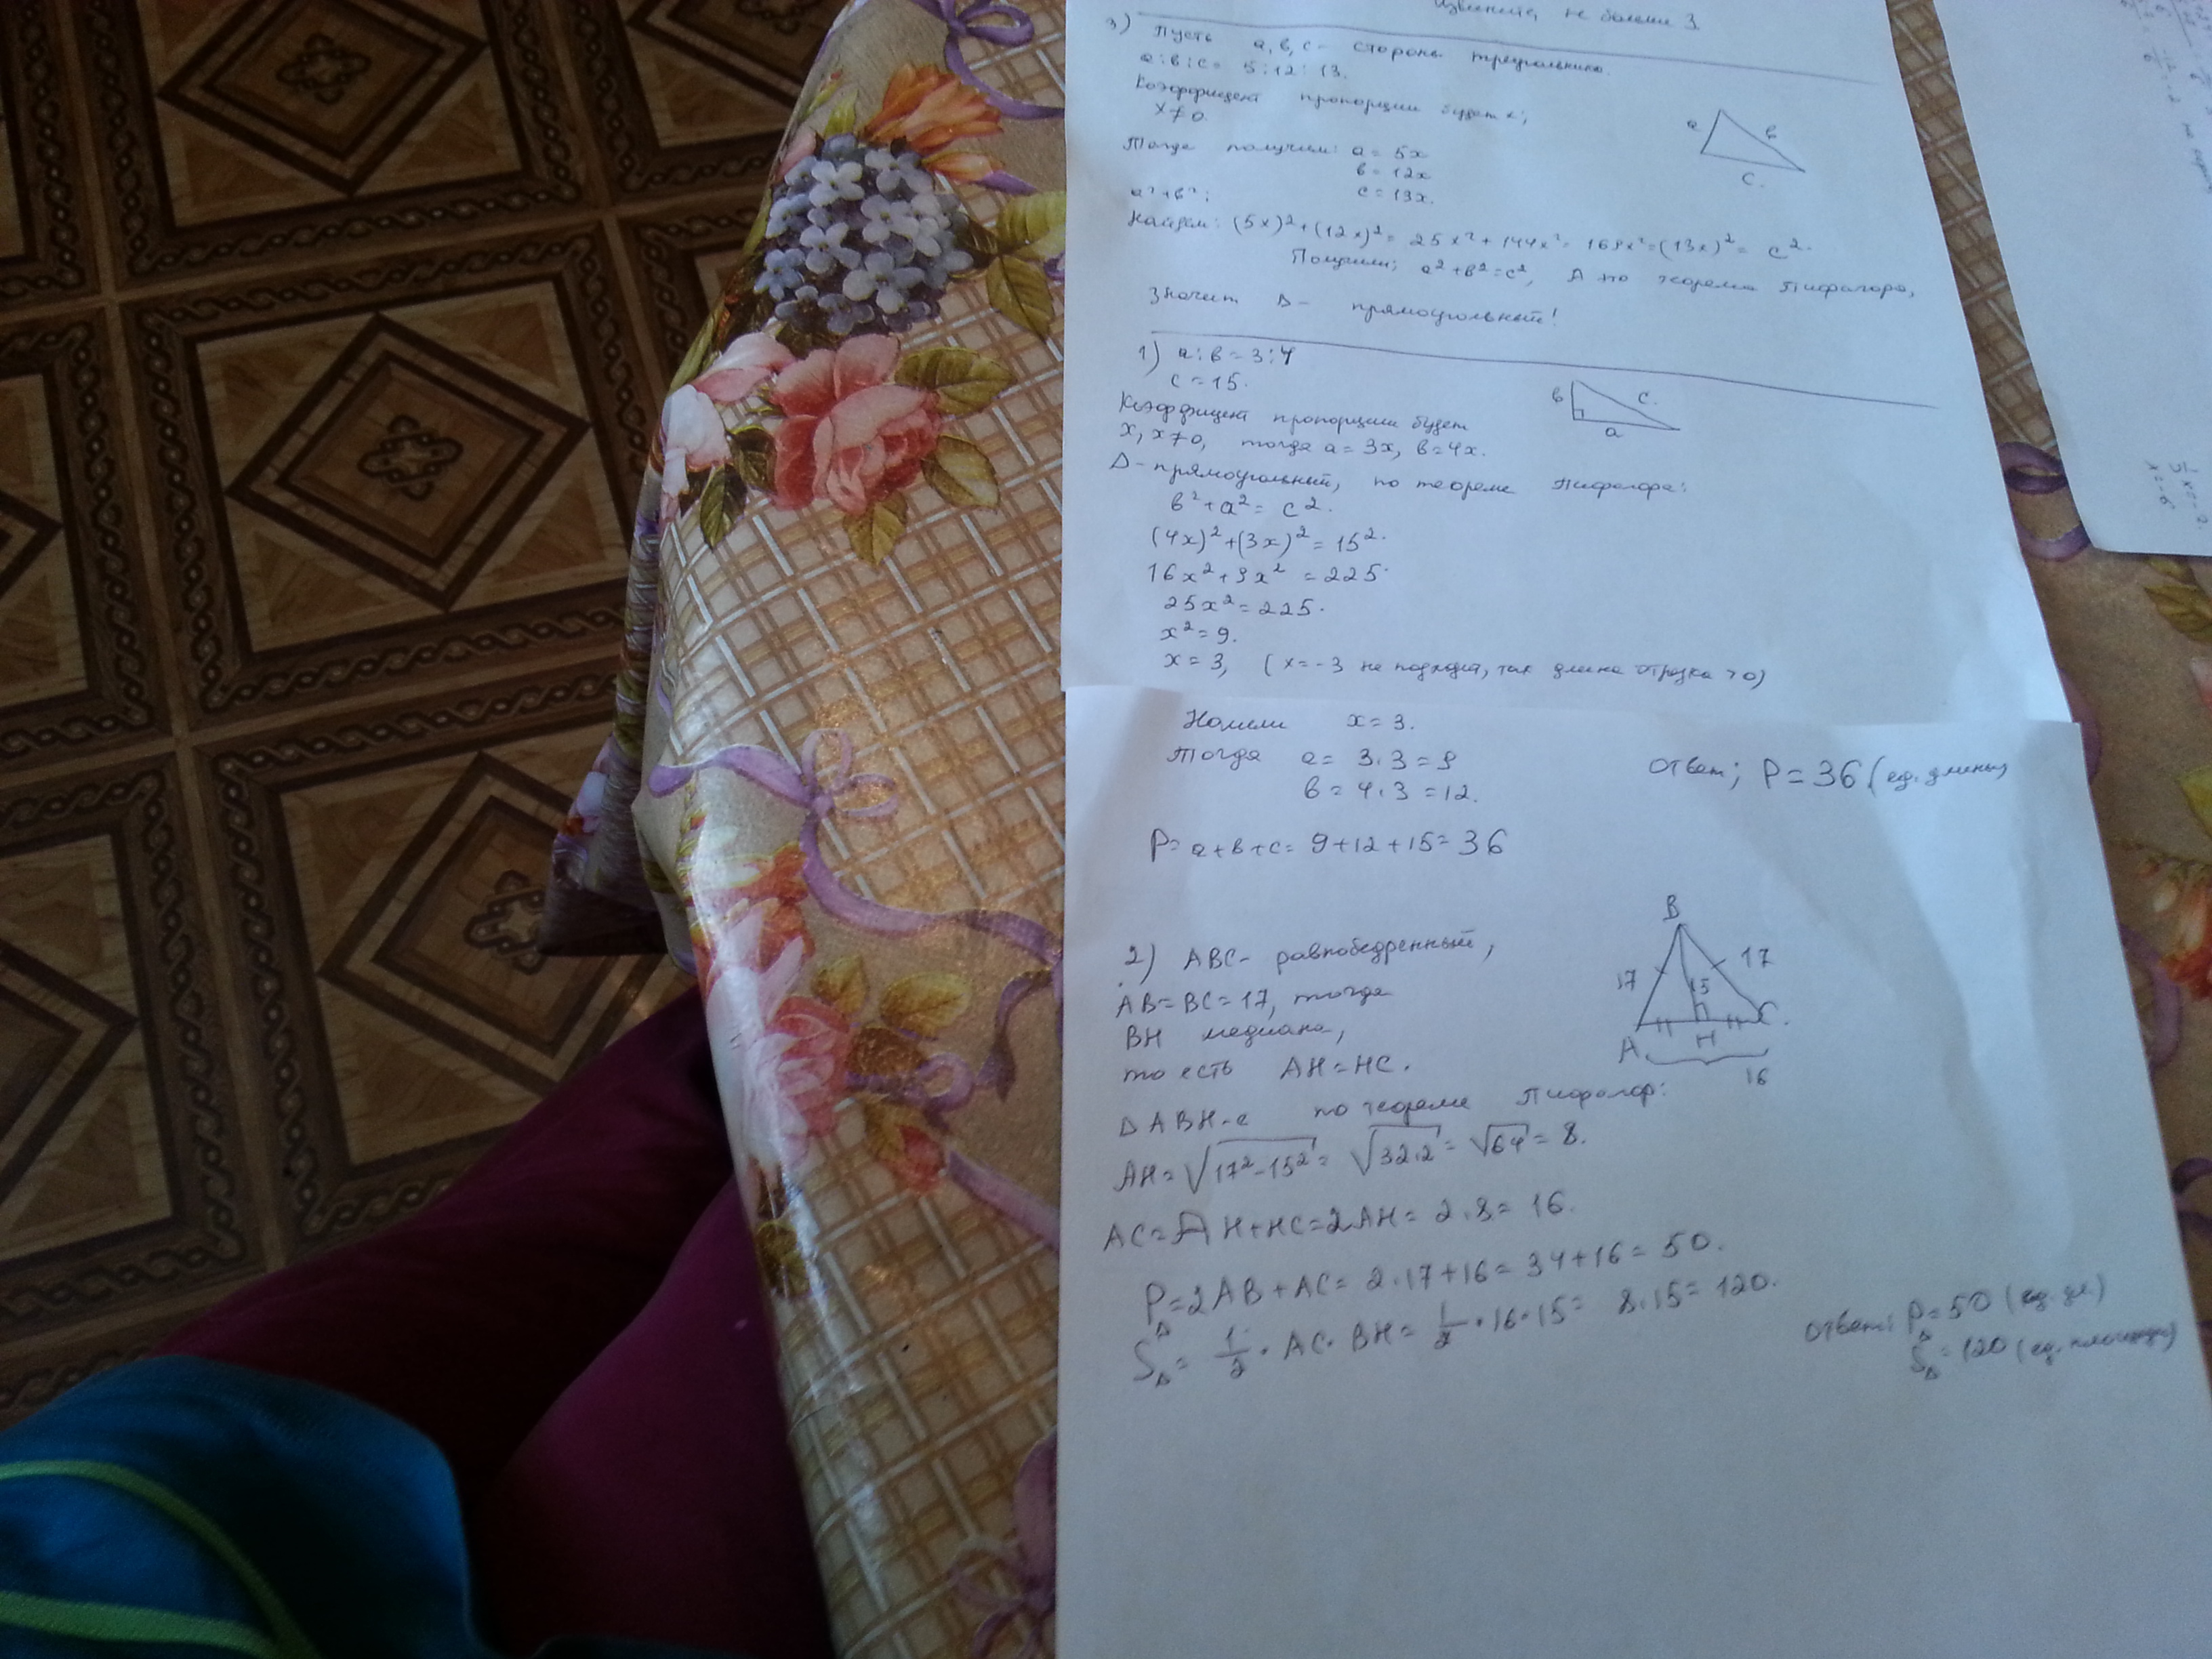 не более 3
3) Пусть а, в, с - стороны треугольника.
а : в : с = 5 : 12 : 13.
Коэффициент пропорции будет x;
x ≠ 0.
Тогда получим: a = 5x
в = 12x
c = 13x.
a² + в²;
Найдем: (5x)² + (12x)² = 25x² + 144x² = 169x² = (13x)² = c².
Получили; a² + в² = c², А по теореме Пифагора,
значит Δ - прямоугольный!
a
в
c.
1) a : в = 3 : 4
c = 15.
Коэффицент пропорции будет
x, x ≠ 0, тогда a = 3x, в = 4x.
Δ - прямоугольный, по теореме Пифагора:
в² + a² = c².
(4x)² + (3x)² = 15².
16x² + 9x² = 225.
25x² = 225.
x² = 9.
x = 3, (x = -3 не подходит, так длина отрезка > 0)
в
c.
a
Нашли x = 3.
Тогда a = 3·3 = 9
в = 4·3 = 12.
P = a + в + c = 9 + 12 + 15 = 36
Ответ; P = 36 (ед. длины)
2) ABC - равнобедренный,
AB = BC = 17, тогда
BH медиана,
то есть AH = HC.
Δ ABH - с по теореме Пифагор:
AH = √17² - 15² = √32·2 = √64 = 8.
AC = AH + HC = 2AH = 2·8 = 16.
P Δ = 2AB + AC = 2·17 + 16 = 34 + 16 = 50.
S Δ = 1/2 · AC · BH = 1/2 · 16 · 15 = 8·15 = 120.
B
17
17
15
A
H
C.
16
Ответ: P Δ = 50 (ед. дл)
S Δ = 120 (ед. площади)
x = -6